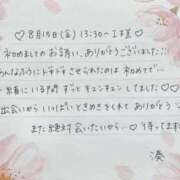 ♡8月15日(金) 13:30～ I様♡
初めましてのお誘い、ありがとうございました!!!
あんなふうにドキドキさせられたのは 初めてで…
一緒にいる間 ずっと キュンキュンしてました♡
出会いから いっぱいときめきをくれて ありがとう
また絶対会いたいから…♡ 待ってます
湊